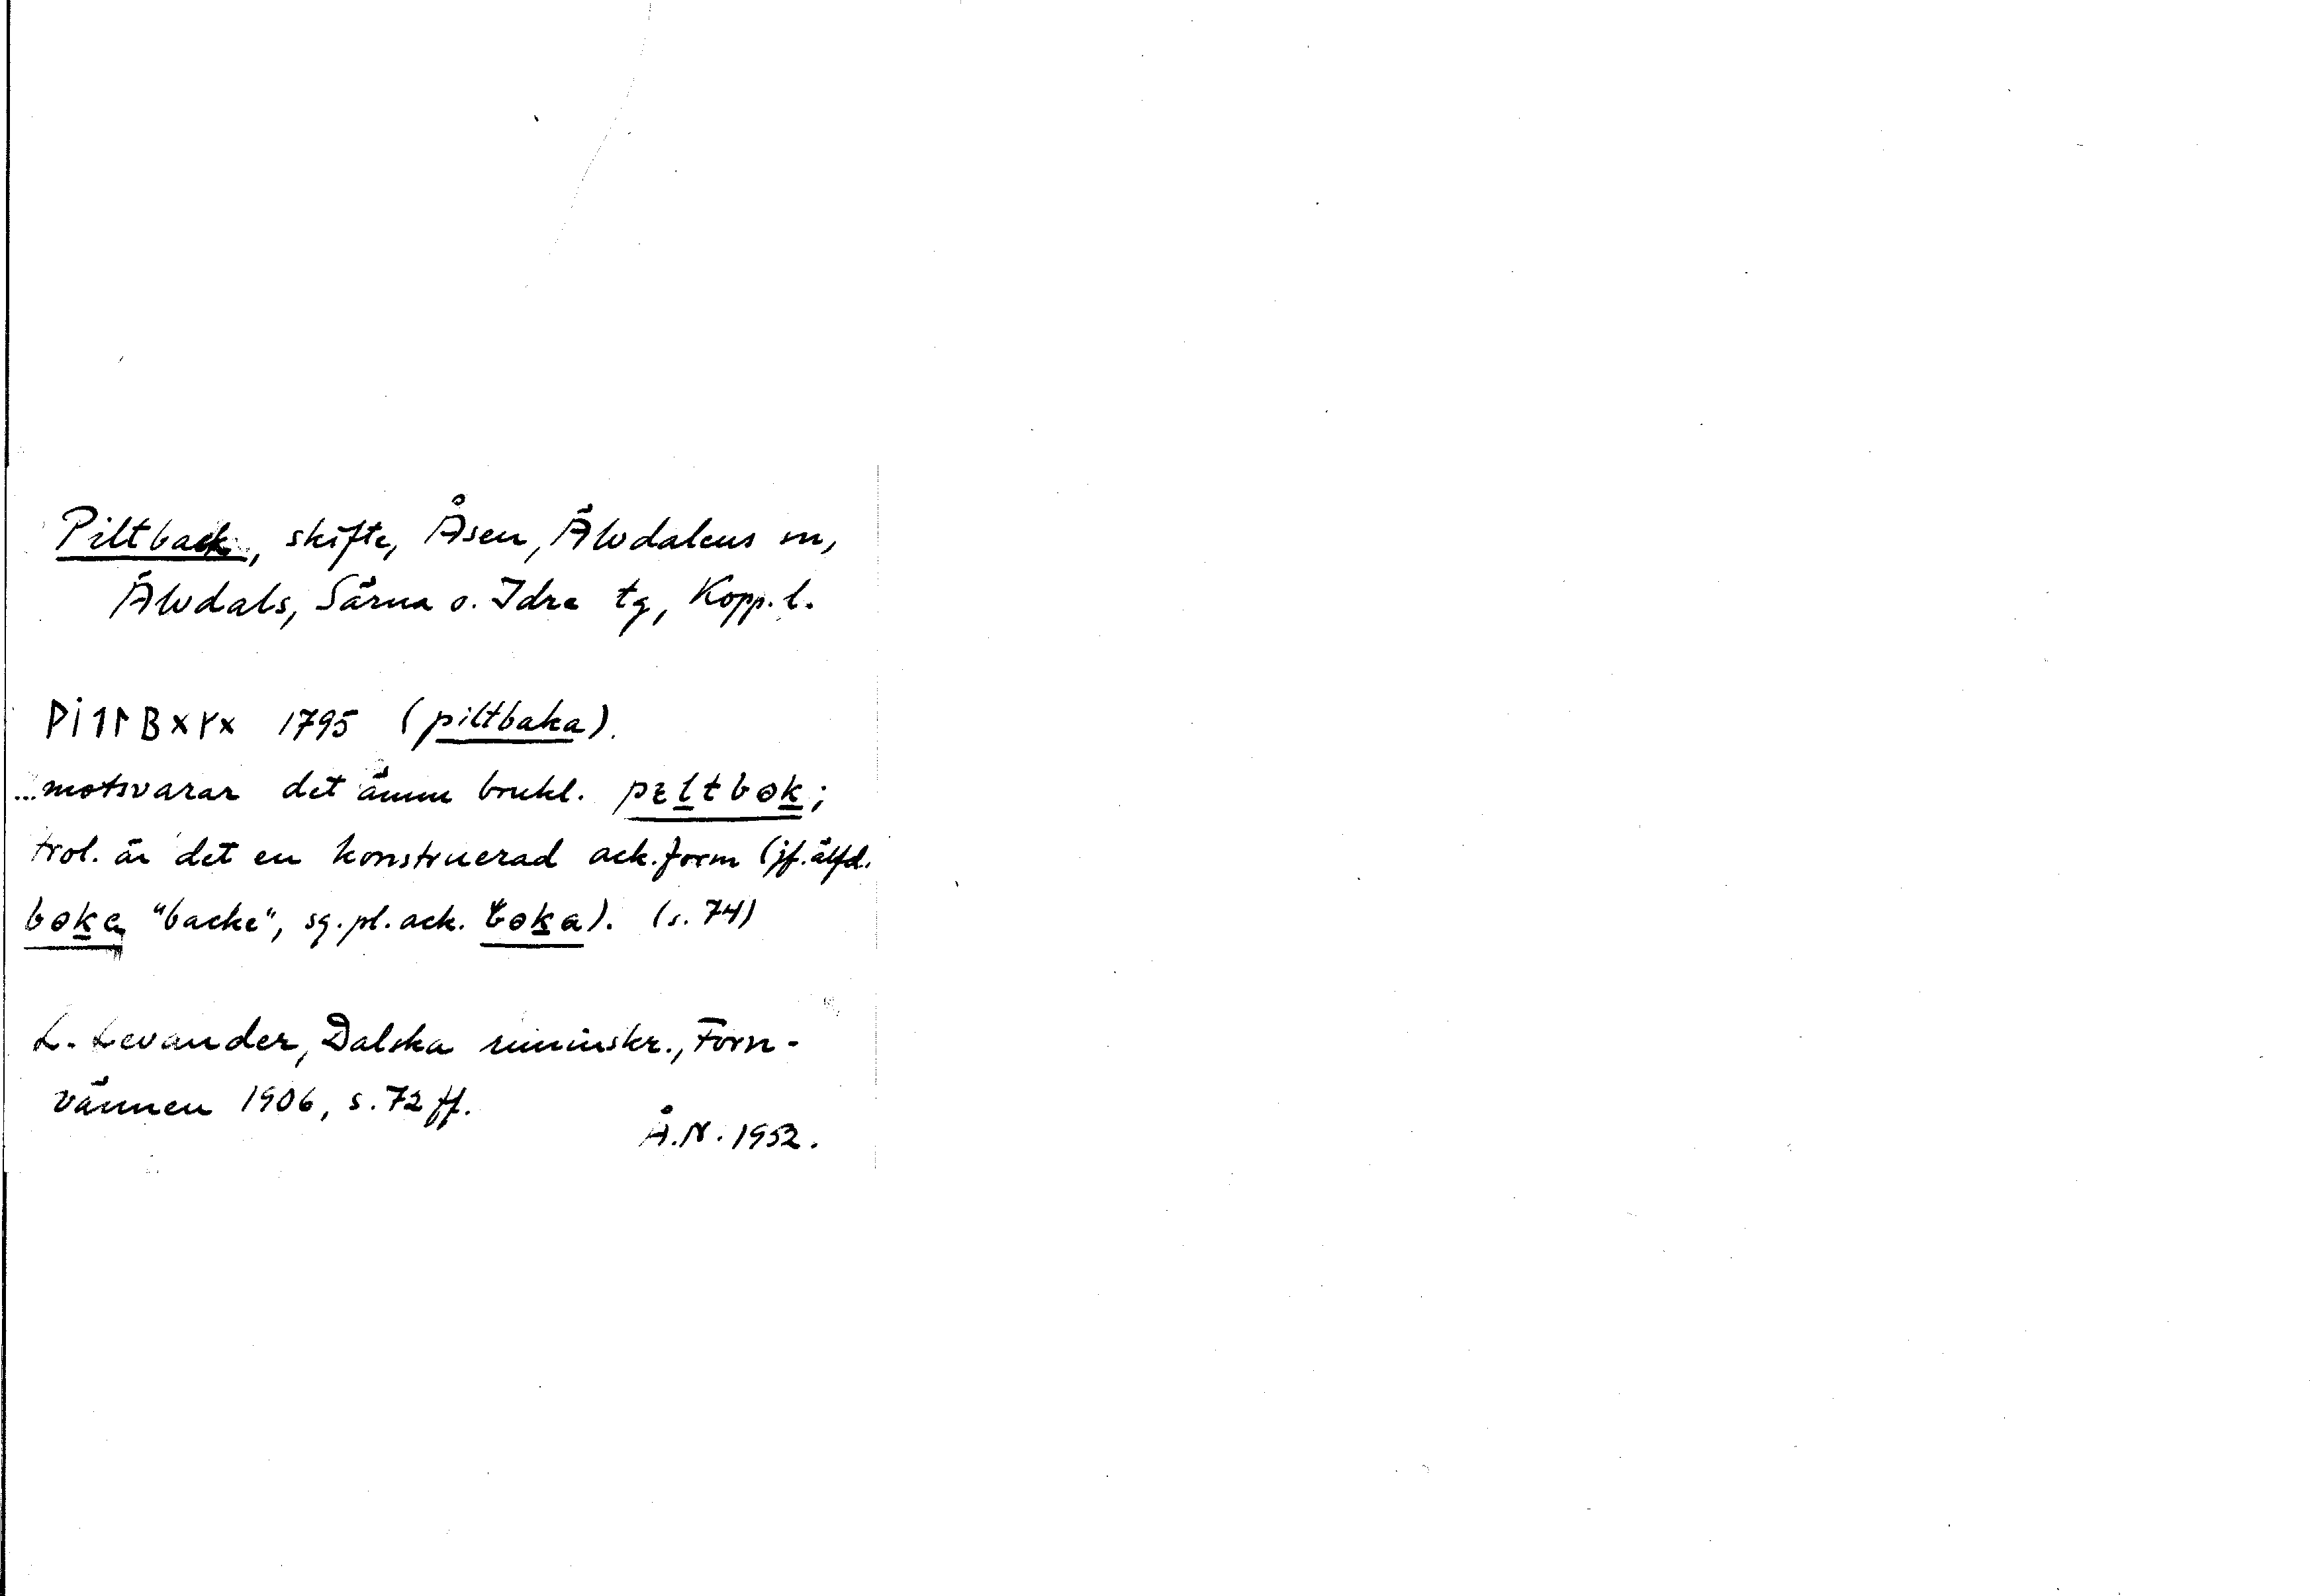 Piltback, skifte, Åsen, Älvdalens sn,
Älvdals, Särna o. Idre tg, Kopp. l.
ᚹi1ᛚBxᚴx 1795 (piltbaka).
...motsvarar det ännu brukl. pɛltbɵk;
trol. är det en konstruerad ack.form (jf. älfd.
bɵka "backe", sg. pl. ack. bɵka). (s. 74)
L. Levander, Dalska runinskr., Forn-
vännen 1906, s. 72 ff.
Å.N. 1952.